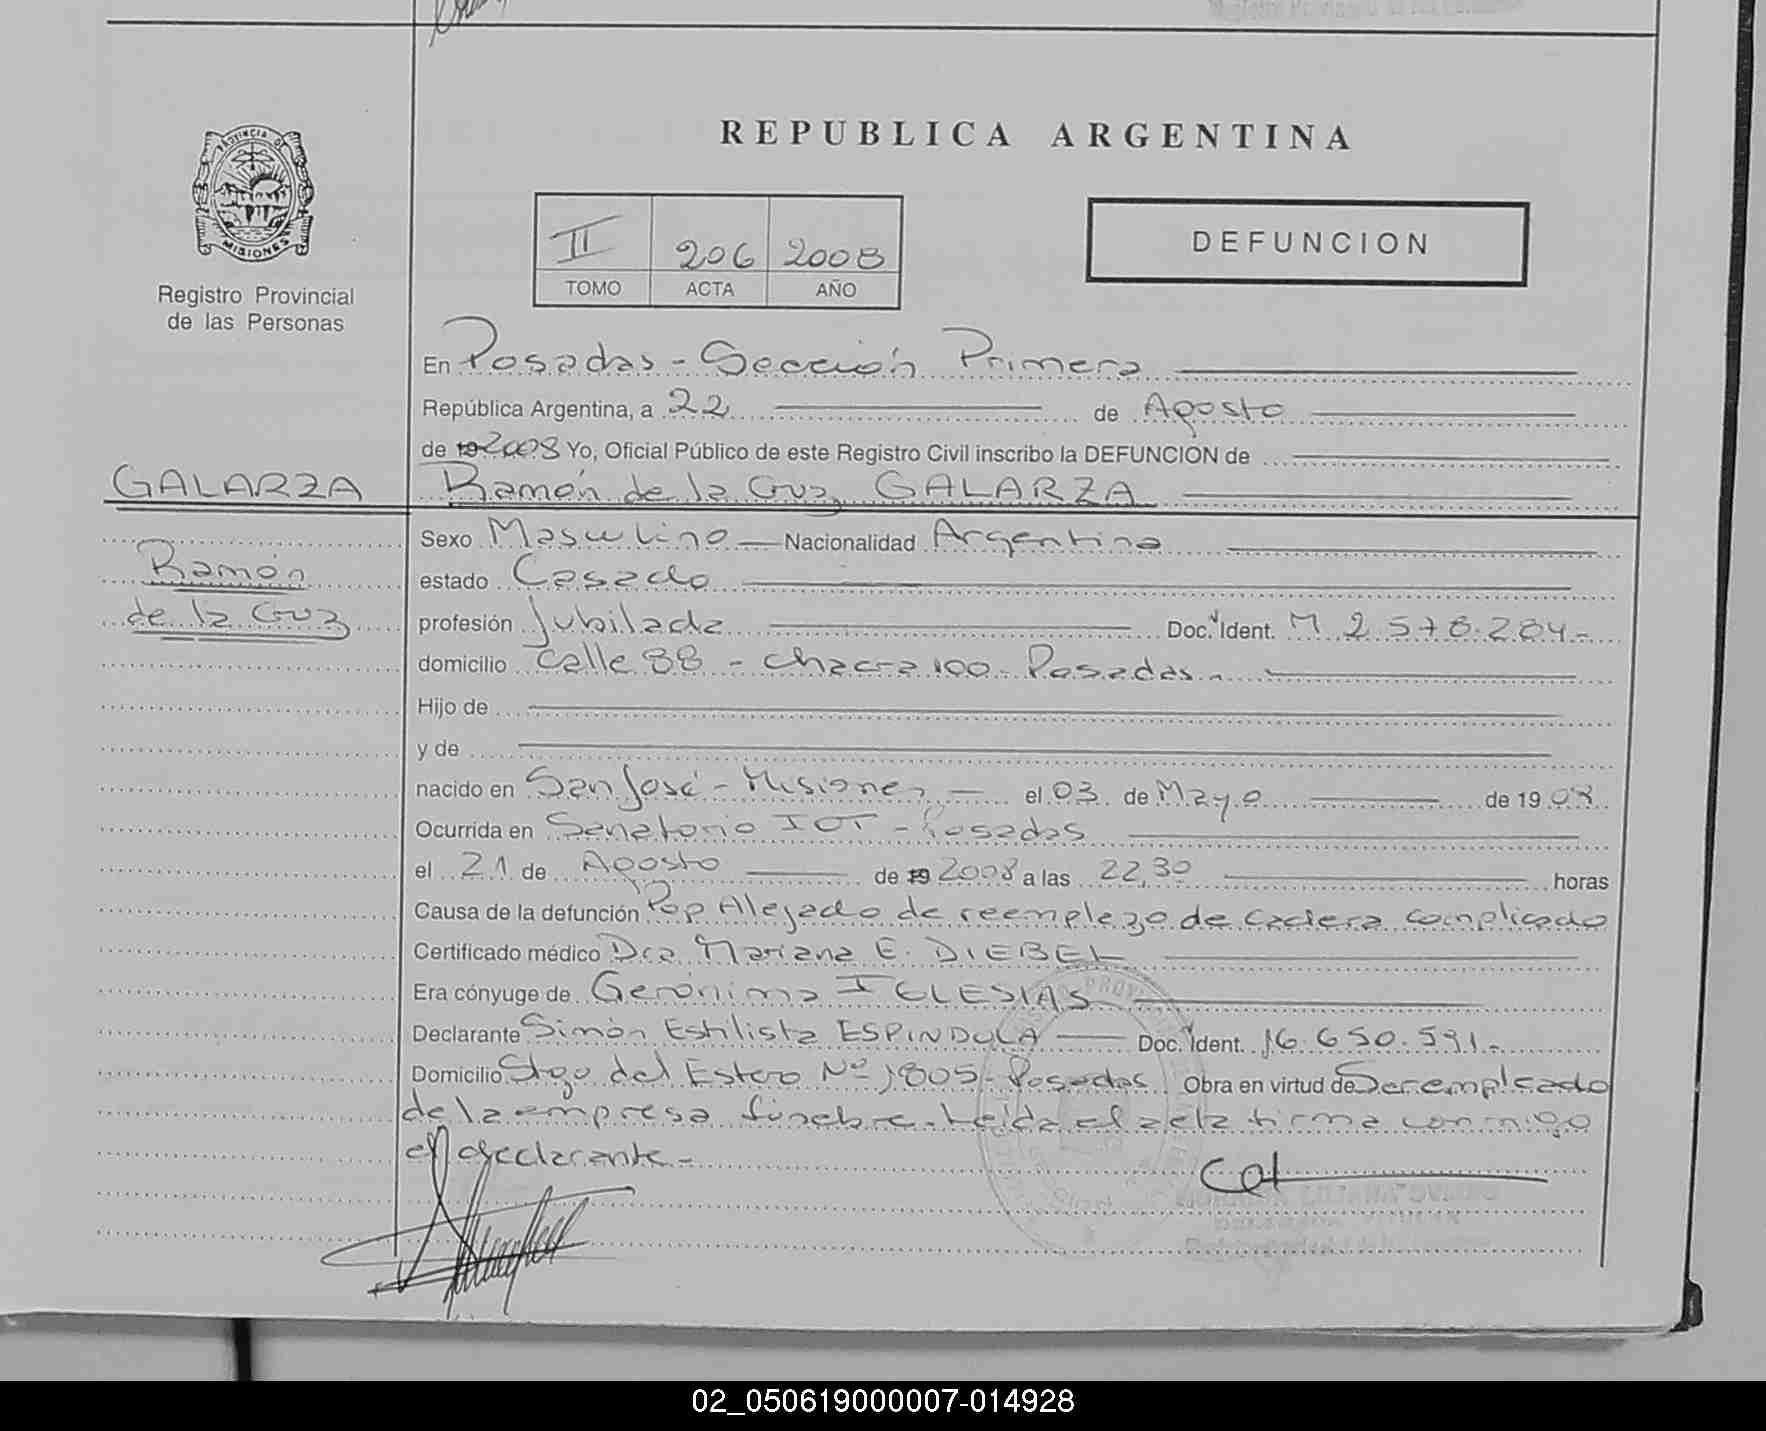 REPUBLICA ARGENTINA
PROVINCIA DE
MISIONES
Registro Provincial
de las Personas
II 206 2008
TOMO ACTA AÑO
DEFUNCION
En Posadas - Sección Primera
República Argentina, a 22 de Agosto
de 19 2008 Yo, Oficial Público de este Registro Civil inscribo la DEFUNCION de
GALARZA
Ramón de la Cruz GALARZA
Ramón
de la Cruz
Sexo Masculino Nacionalidad Argentina
estado Casado
profesión Jubilada Doc. Ident. M 2.578.284.-
domicilio Calle 88 - Chacra 100 - Posadas.
Hijo de
y de
nacido en San José - Misiones, el 03 de Mayo de 19
Ocurrida en Sanatorio IOT - Posadas
el 21 de Agosto de 19 2008 a las 22,30 horas
Causa de la defunción Pop Alejado de reemplazo de cadera complicado
Certificado médico Dra. Mariana E. DIEBEL
Era cónyuge de Gerónima IGLESIAS
Declarante Simón Estilista ESPINDOLA Doc. Ident. 16.650.591.-
Domicilio Stgo del Estero Nº 1805 - Posadas Obra en virtud de Ser empleado
de la empresa fúnebre. Leída el acta firma conmigo
el declarante.-
02_050619000007-014928